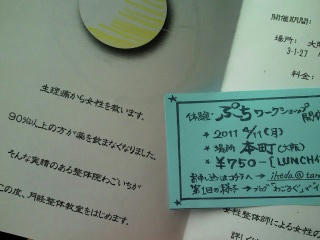 生理痛から女性を救います。
90%以上の方が薬を飲まなくなりました。
そんな実績のある整体院わごいちが
この度、月経整体教室をはじめます。
開催期間:
場所: 大阪
3-1-27
料金:
体験・ぷちワークショップ開催
* 2011 4/11(月)
* 場所 本町(大阪)
* ¥750-[LUNCH
お申し込みはコチラへ → iheda@tam
第1回の様子 → ブログ「わごいち」
女性整体師による女性の